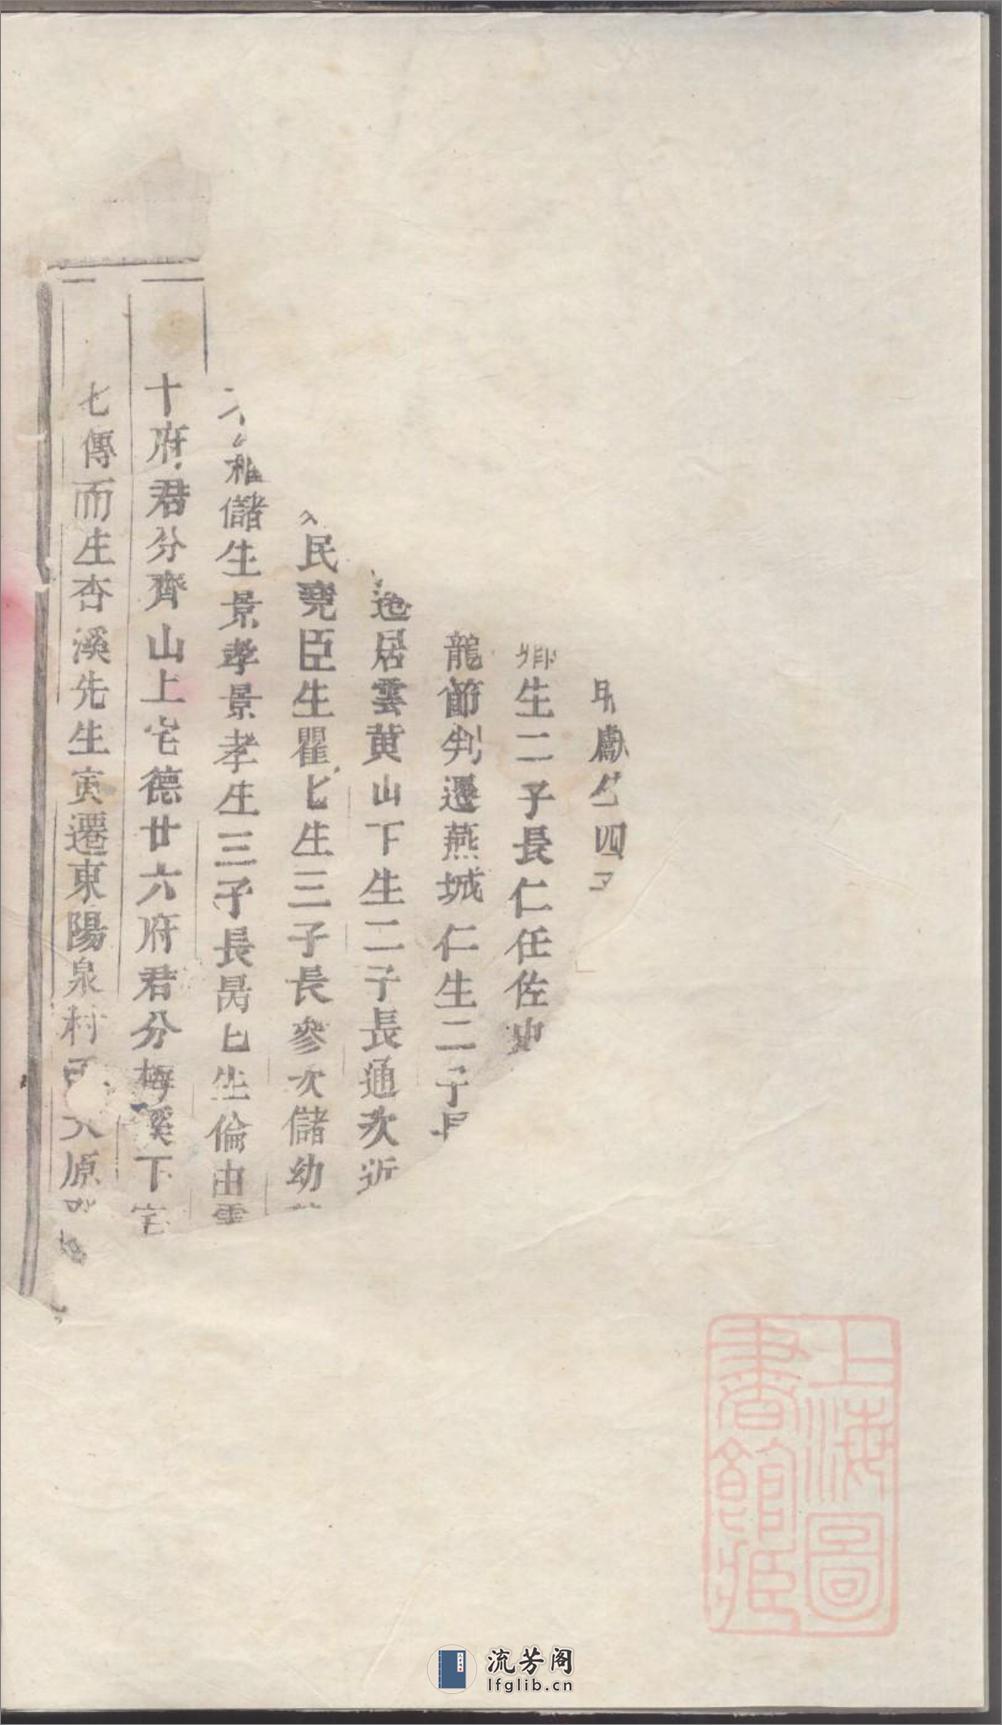 獻生四
生二子長仁任佐
龍節判遷燕城仁生二子長
居雲黄山下生二子長通次近
民堯臣生瞿七生三子長參次儲幼
儲生景孝景孝生三子長昺七生倫由雲
十府君分齊山上宅德廿六府君分梅溪下宅
七傳而生杏溪先生寅遷東陽泉村原
上海圖書館藏
流芳阁
lfglib.cn